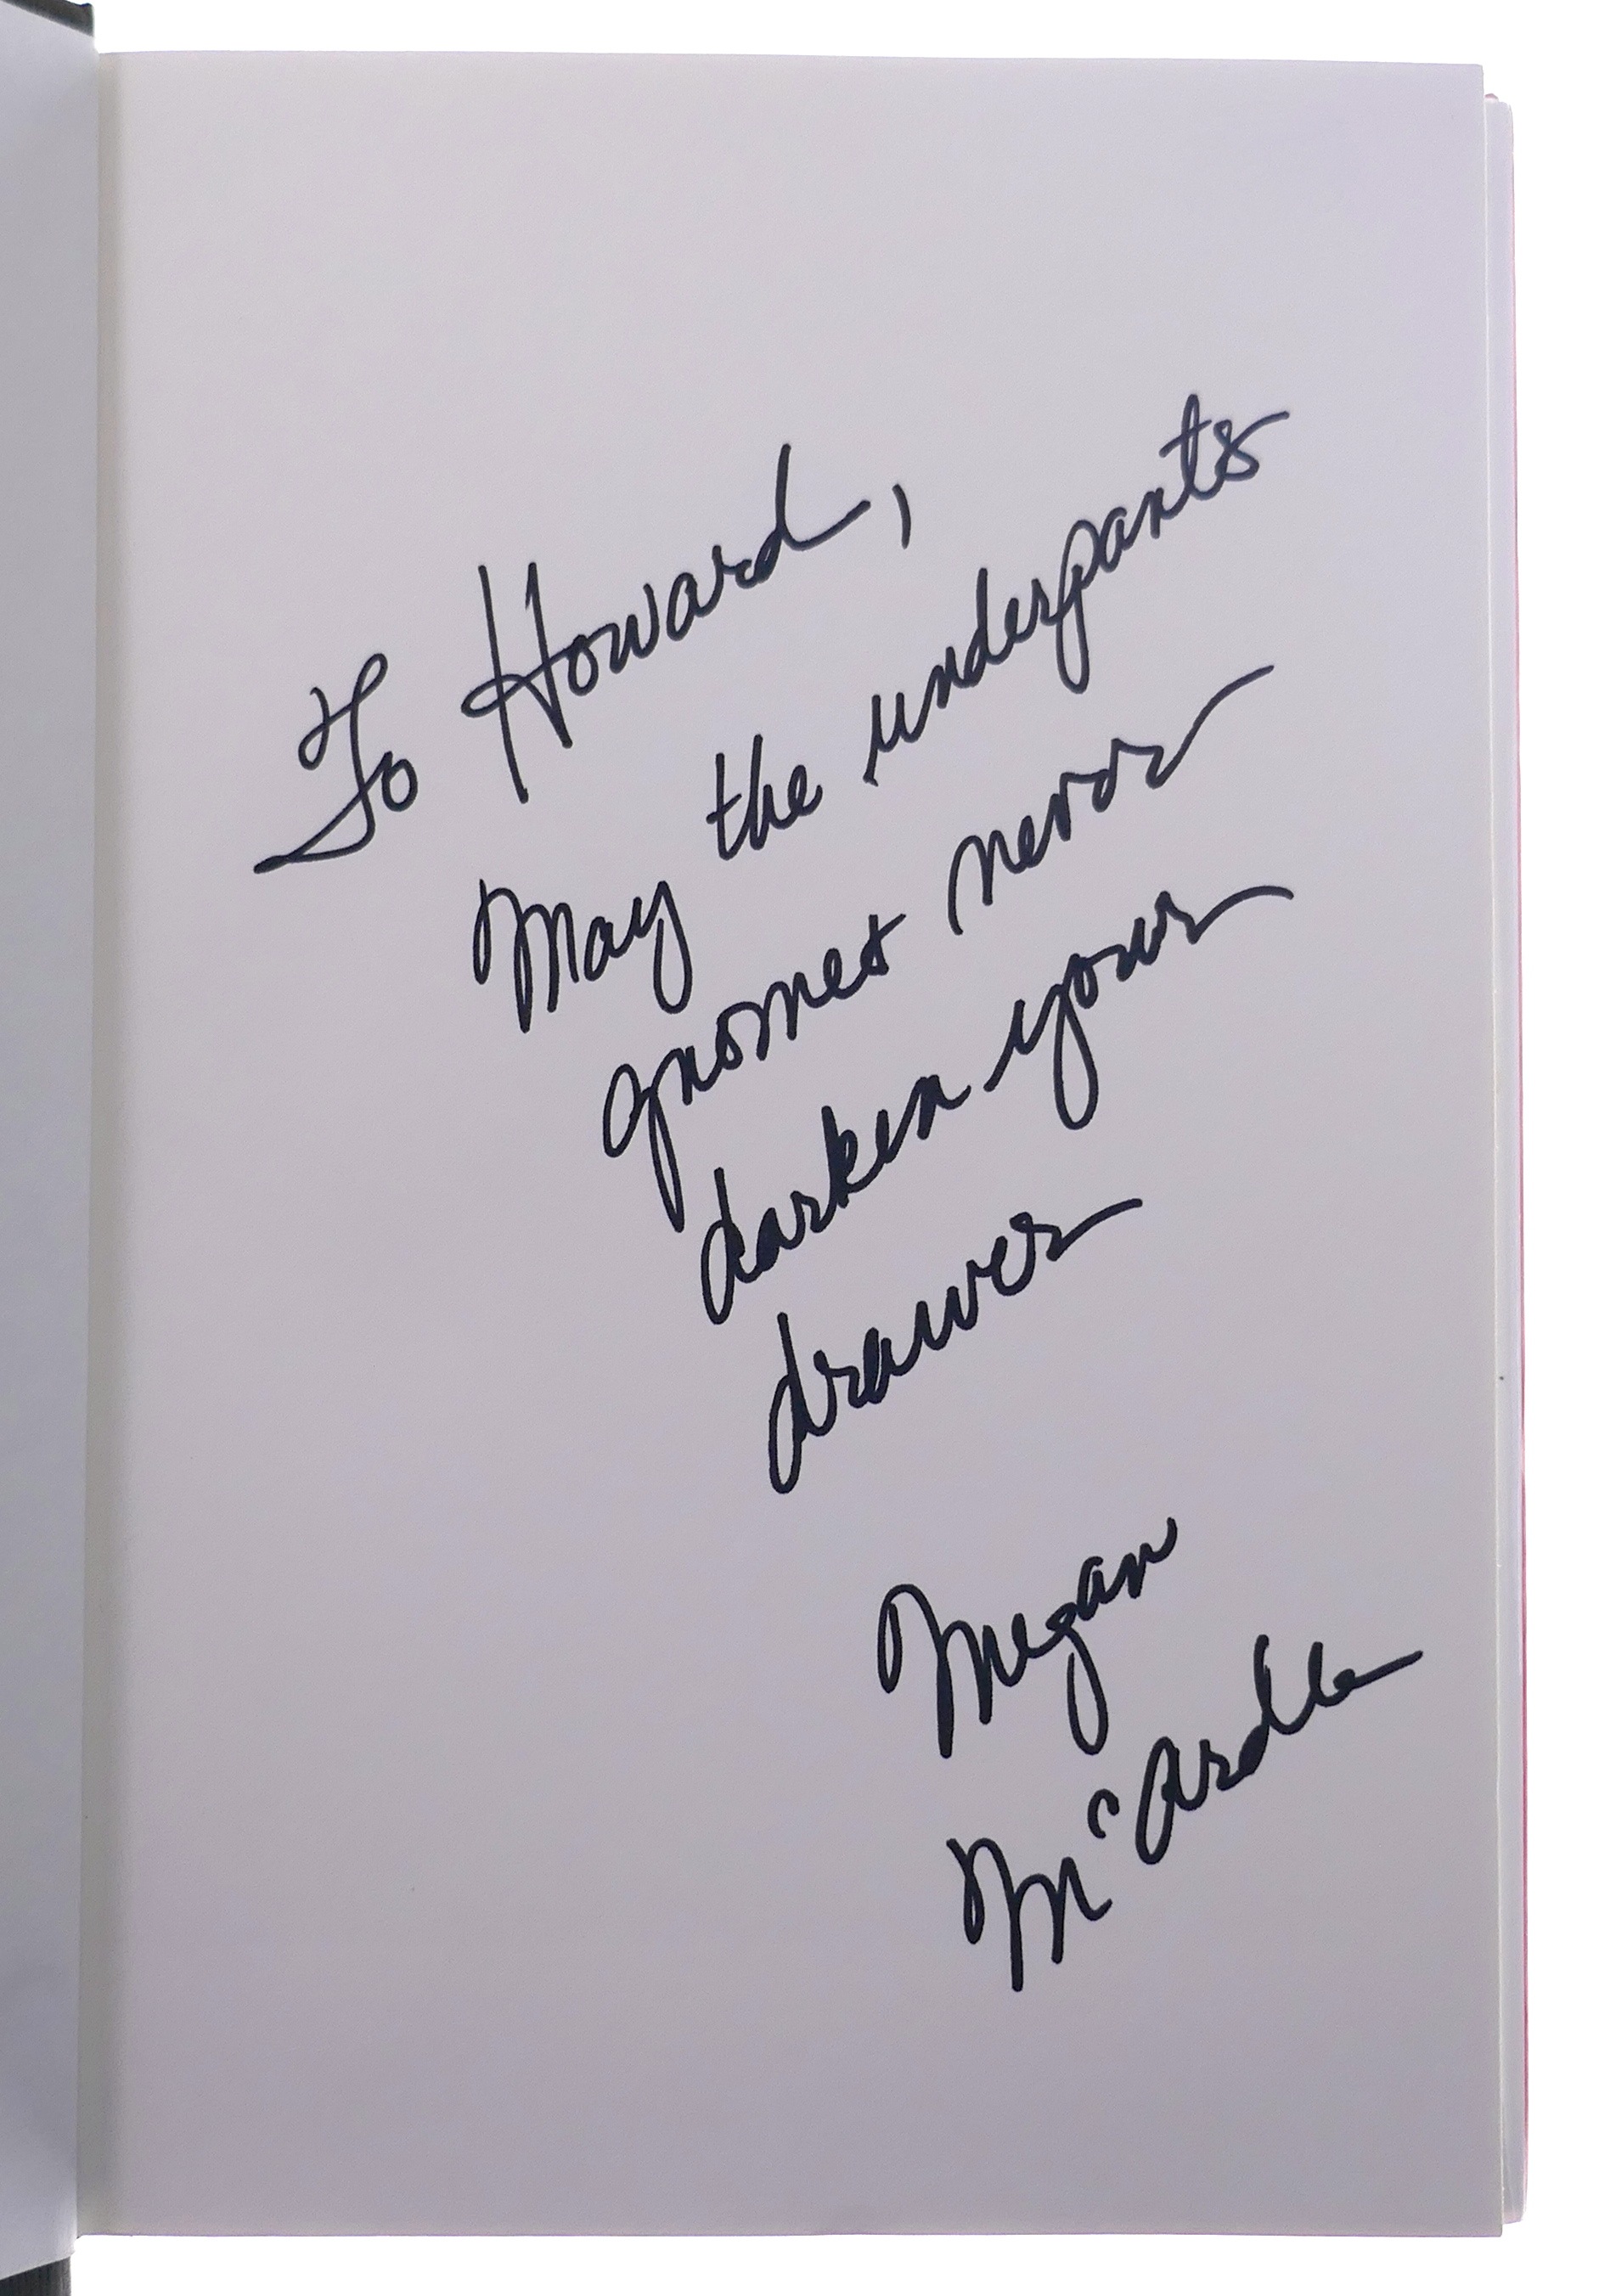 To Howard,
May the underpants
gnomes never
darken your
drawer
Megan
McArdle